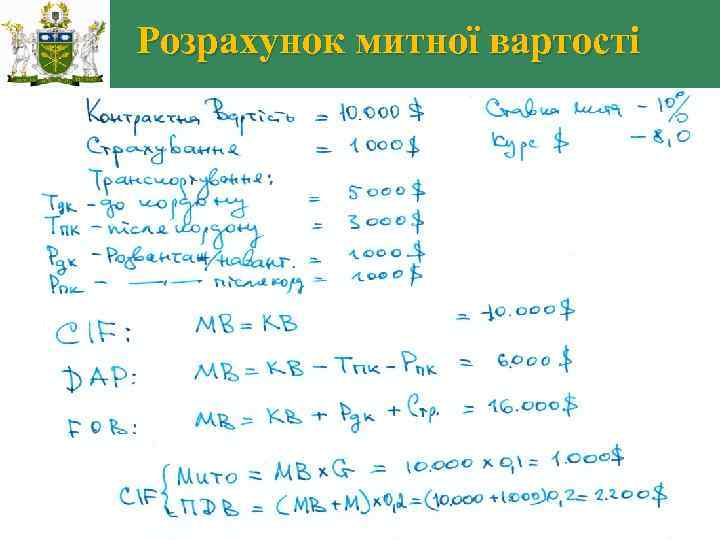 Розрахунок митної вартості
Контрактна Вартість = 10.000 $
Ставка мита - 10%
Страхування = 1000 $
Курс $ - 8,0
Транспортування:
Тдк - до кордону = 5000 $
Тпк - після кордону = 3000 $
Рдк - Розвантаж/навант. = 1000 $
Рпк - —〃— після корд = 1000 $
CIF: МВ = КВ = 10.000 $
DAP: МВ = КВ - Тпк - Рпк = 6.000 $
FOB: МВ = КВ + Рдк + Стр. = 16.000 $
CIF { Мито = МВ × Ст = 10.000 × 0,1 = 1.000 $
ПДВ = (МВ + М) × 0,2 = (10.000 + 1.000) 0,2 = 2.200 $